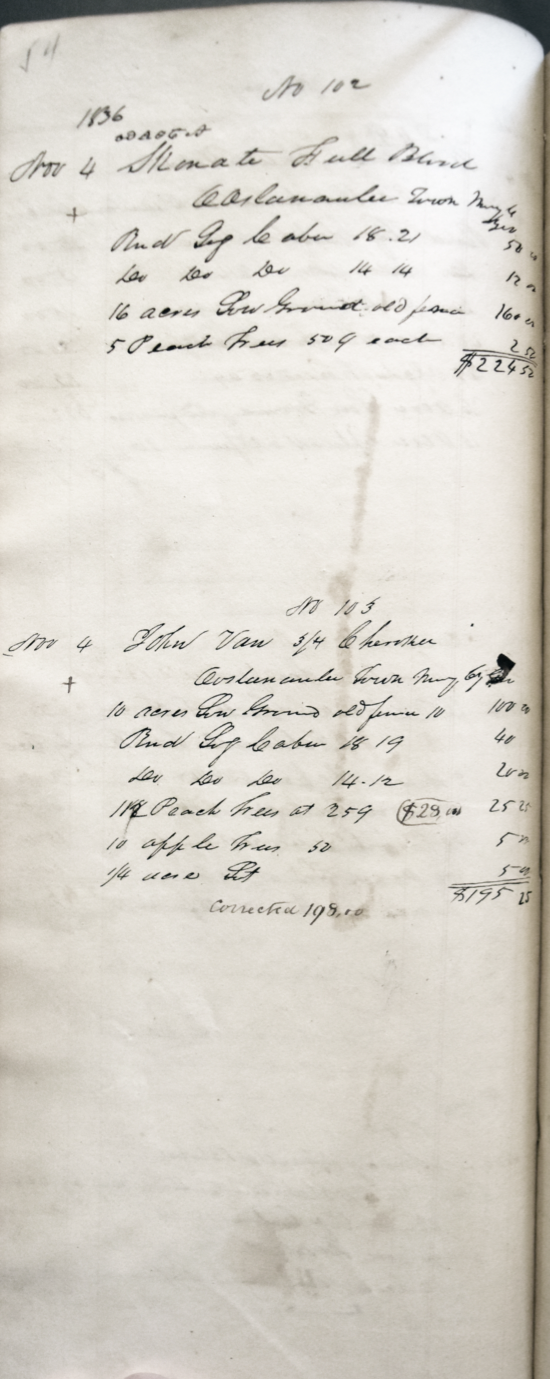 54
No 102
1836
Nov 4 Skonate Full Blood
+ Oostanaulee Town
Rnd Log Cabin 18.21 50
Do Do Do 14 14 12 00
16 acres Low Ground old fence 160 00
5 Peach Trees 50¢ each 2 50
$224 50
No 103
Nov 4 John Van 3/4 Cherokee
+ Oostanaulee Town
10 acres Low Ground old fence 10 100 00
Rnd Log Cabin 18 19 40
Do Do Do 14.12 20 00
Peach Trees at 25¢ $28.00 25 25
10 apple Trees 50 5 00
1/4 acre Lot 5 00
$195 25
Corrected 198.00